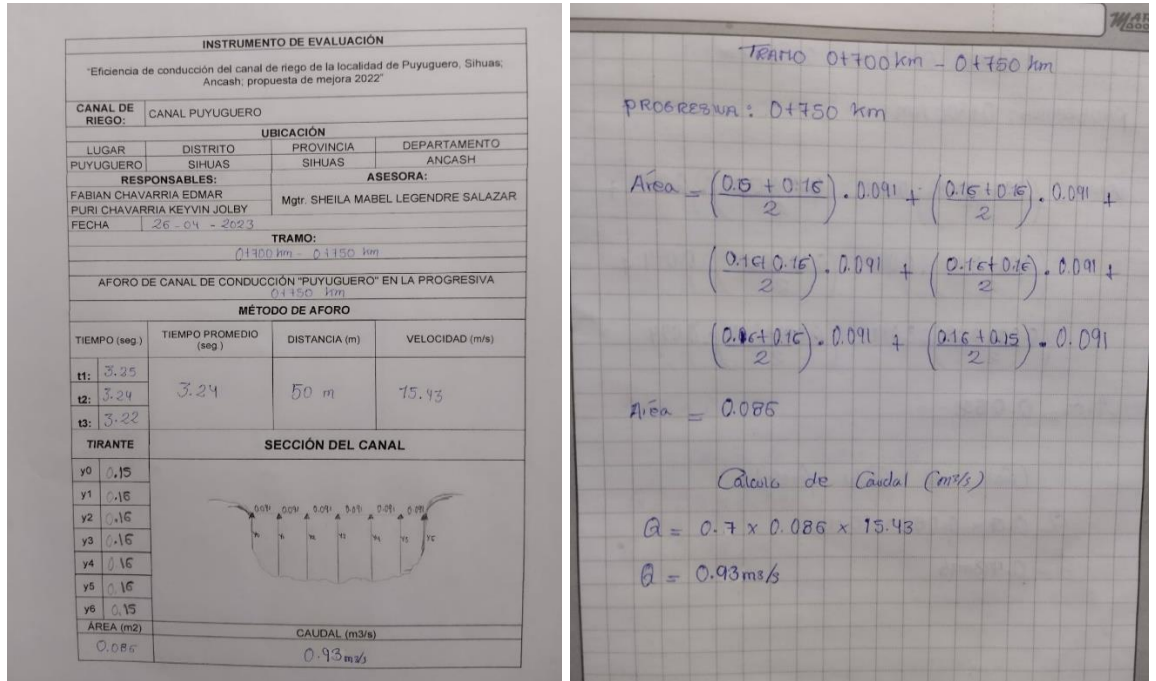 INSTRUMENTO DE EVALUACIÓN
"Eficiencia de conducción del canal de riego de la localidad de Puyuguero, Sihuas;
Ancash; propuesta de mejora 2022"
CANAL DE RIEGO: CANAL PUYUGUERO
UBICACIÓN
LUGAR DISTRITO PROVINCIA DEPARTAMENTO
PUYUGUERO SIHUAS SIHUAS ANCASH
RESPONSABLES: ASESORA:
FABIAN CHAVARRIA EDMAR
PURI CHAVARRIA KEYVIN JOLBY
Mgtr. SHEILA MABEL LEGENDRE SALAZAR
FECHA 26 - 04 - 2023
TRAMO:
0+700 km - 0+750 km
AFORO DE CANAL DE CONDUCCIÓN "PUYUGUERO" EN LA PROGRESIVA
0+750 km
MÉTODO DE AFORO
TIEMPO (seg.) TIEMPO PROMEDIO (seg.) DISTANCIA (m) VELOCIDAD (m/s)
t1: 3.25
t2: 3.24
t3: 3.22
3.24 50 m 15.43
TIRANTE SECCIÓN DEL CANAL
y0 0.15
y1 0.16
y2 0.16
y3 0.16
y4 0.16
y5 0.16
y6 0.15
0.091 0.091 0.091 0.091 0.091 0.091
ÁREA (m2) CAUDAL (m3/s)
0.086 0.93 m3/s
TRAMO 0+700 km - 0+750 km
PROGRESIVA: 0+750 km
Área = (0.15 + 0.16 / 2) . 0.091 + (0.16 + 0.16 / 2) . 0.091 +
(0.16+ 0.16 / 2) . 0.091 + (0.16+ 0.16 / 2) . 0.091 +
(0.16+ 0.16 / 2) . 0.091 + (0.16 + 0.15 / 2) . 0.091
Área = 0.086
Cálculo de Caudal (m3/s)
Q = 0.7 x 0.086 x 15.43
Q = 0.93 m3/s